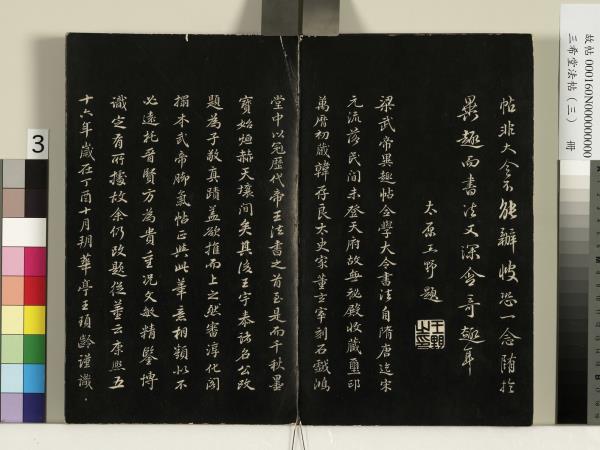 帖非大令不能辦性恐一念隨於
異趣而書法又深會奇趣耳
太原王野題
王野之印
梁武帝異趣帖全學大令書法自隋唐迄宋
元流落民間未登天府故無秘殿收藏璽印
萬曆初藏韓存良太史宋重玄宰刻石戲鴻
堂中以冠歷代帝王法書之首至是而千秋墨
寶始烜赫天壤間矣其後王宇泰諸名公改
題為子敬真蹟蓋欲推而上之然審淳化閣
搨本武帝腳氣帖正與此筆意相類似不
必遠托晉賢方為貴重況文敏精鑒博
識定有所據故余仍改題從董云康熙五
十六年歲在丁酉十月朔華亭王頊齡謹識
故帖 000160N000000000
三希堂法帖（三） 冊
3